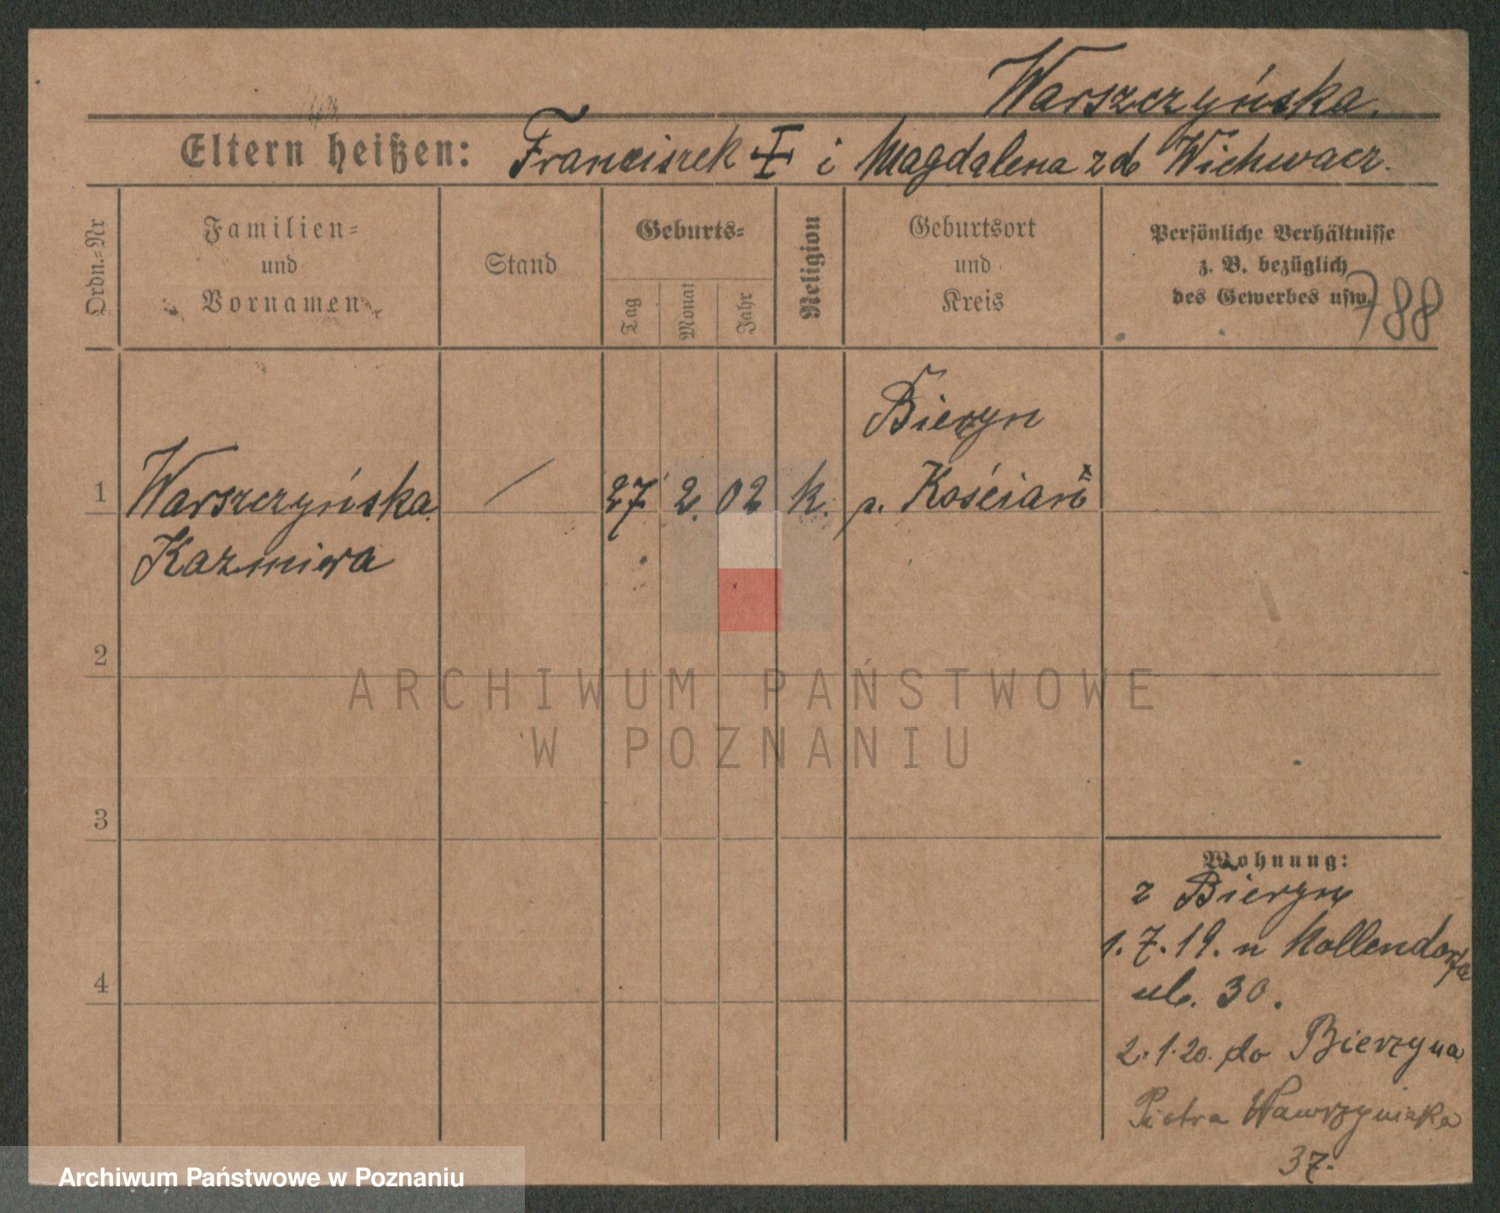 Warszczyńska.
Eltern heißen: Franciszek i Magdalena z d. Wichwacz.
Ordn.-Nr
Familien-
und
Vornamen
Stand
Geburts-
Tag
Monat
Jahr
Religion
Geburtsort
und
Kreis
Persönliche Verhältnisse
z. B. bezüglich
des Gewerbes usw.
788
Bieżyn
1 Warszczyńska / 27 2. 02 k. p. Kościan
Kazmiera
2
3
4
ARCHIWUM PAŃSTWOWE
W POZNANIU
Wohnung:
z Bieżyn
1.7.19. n Mollendorfa
ul. 30.
2.1.20. do Bierzyna
Piotra Wawrzyniaka
37.
Archiwum Państwowe w Poznaniu